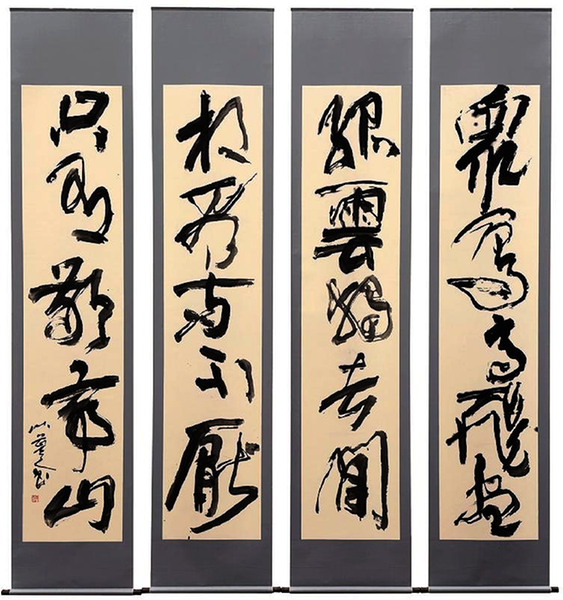 衆鳥高飛盡
孤雲獨去閒
相看兩不厭
只有敬亭山